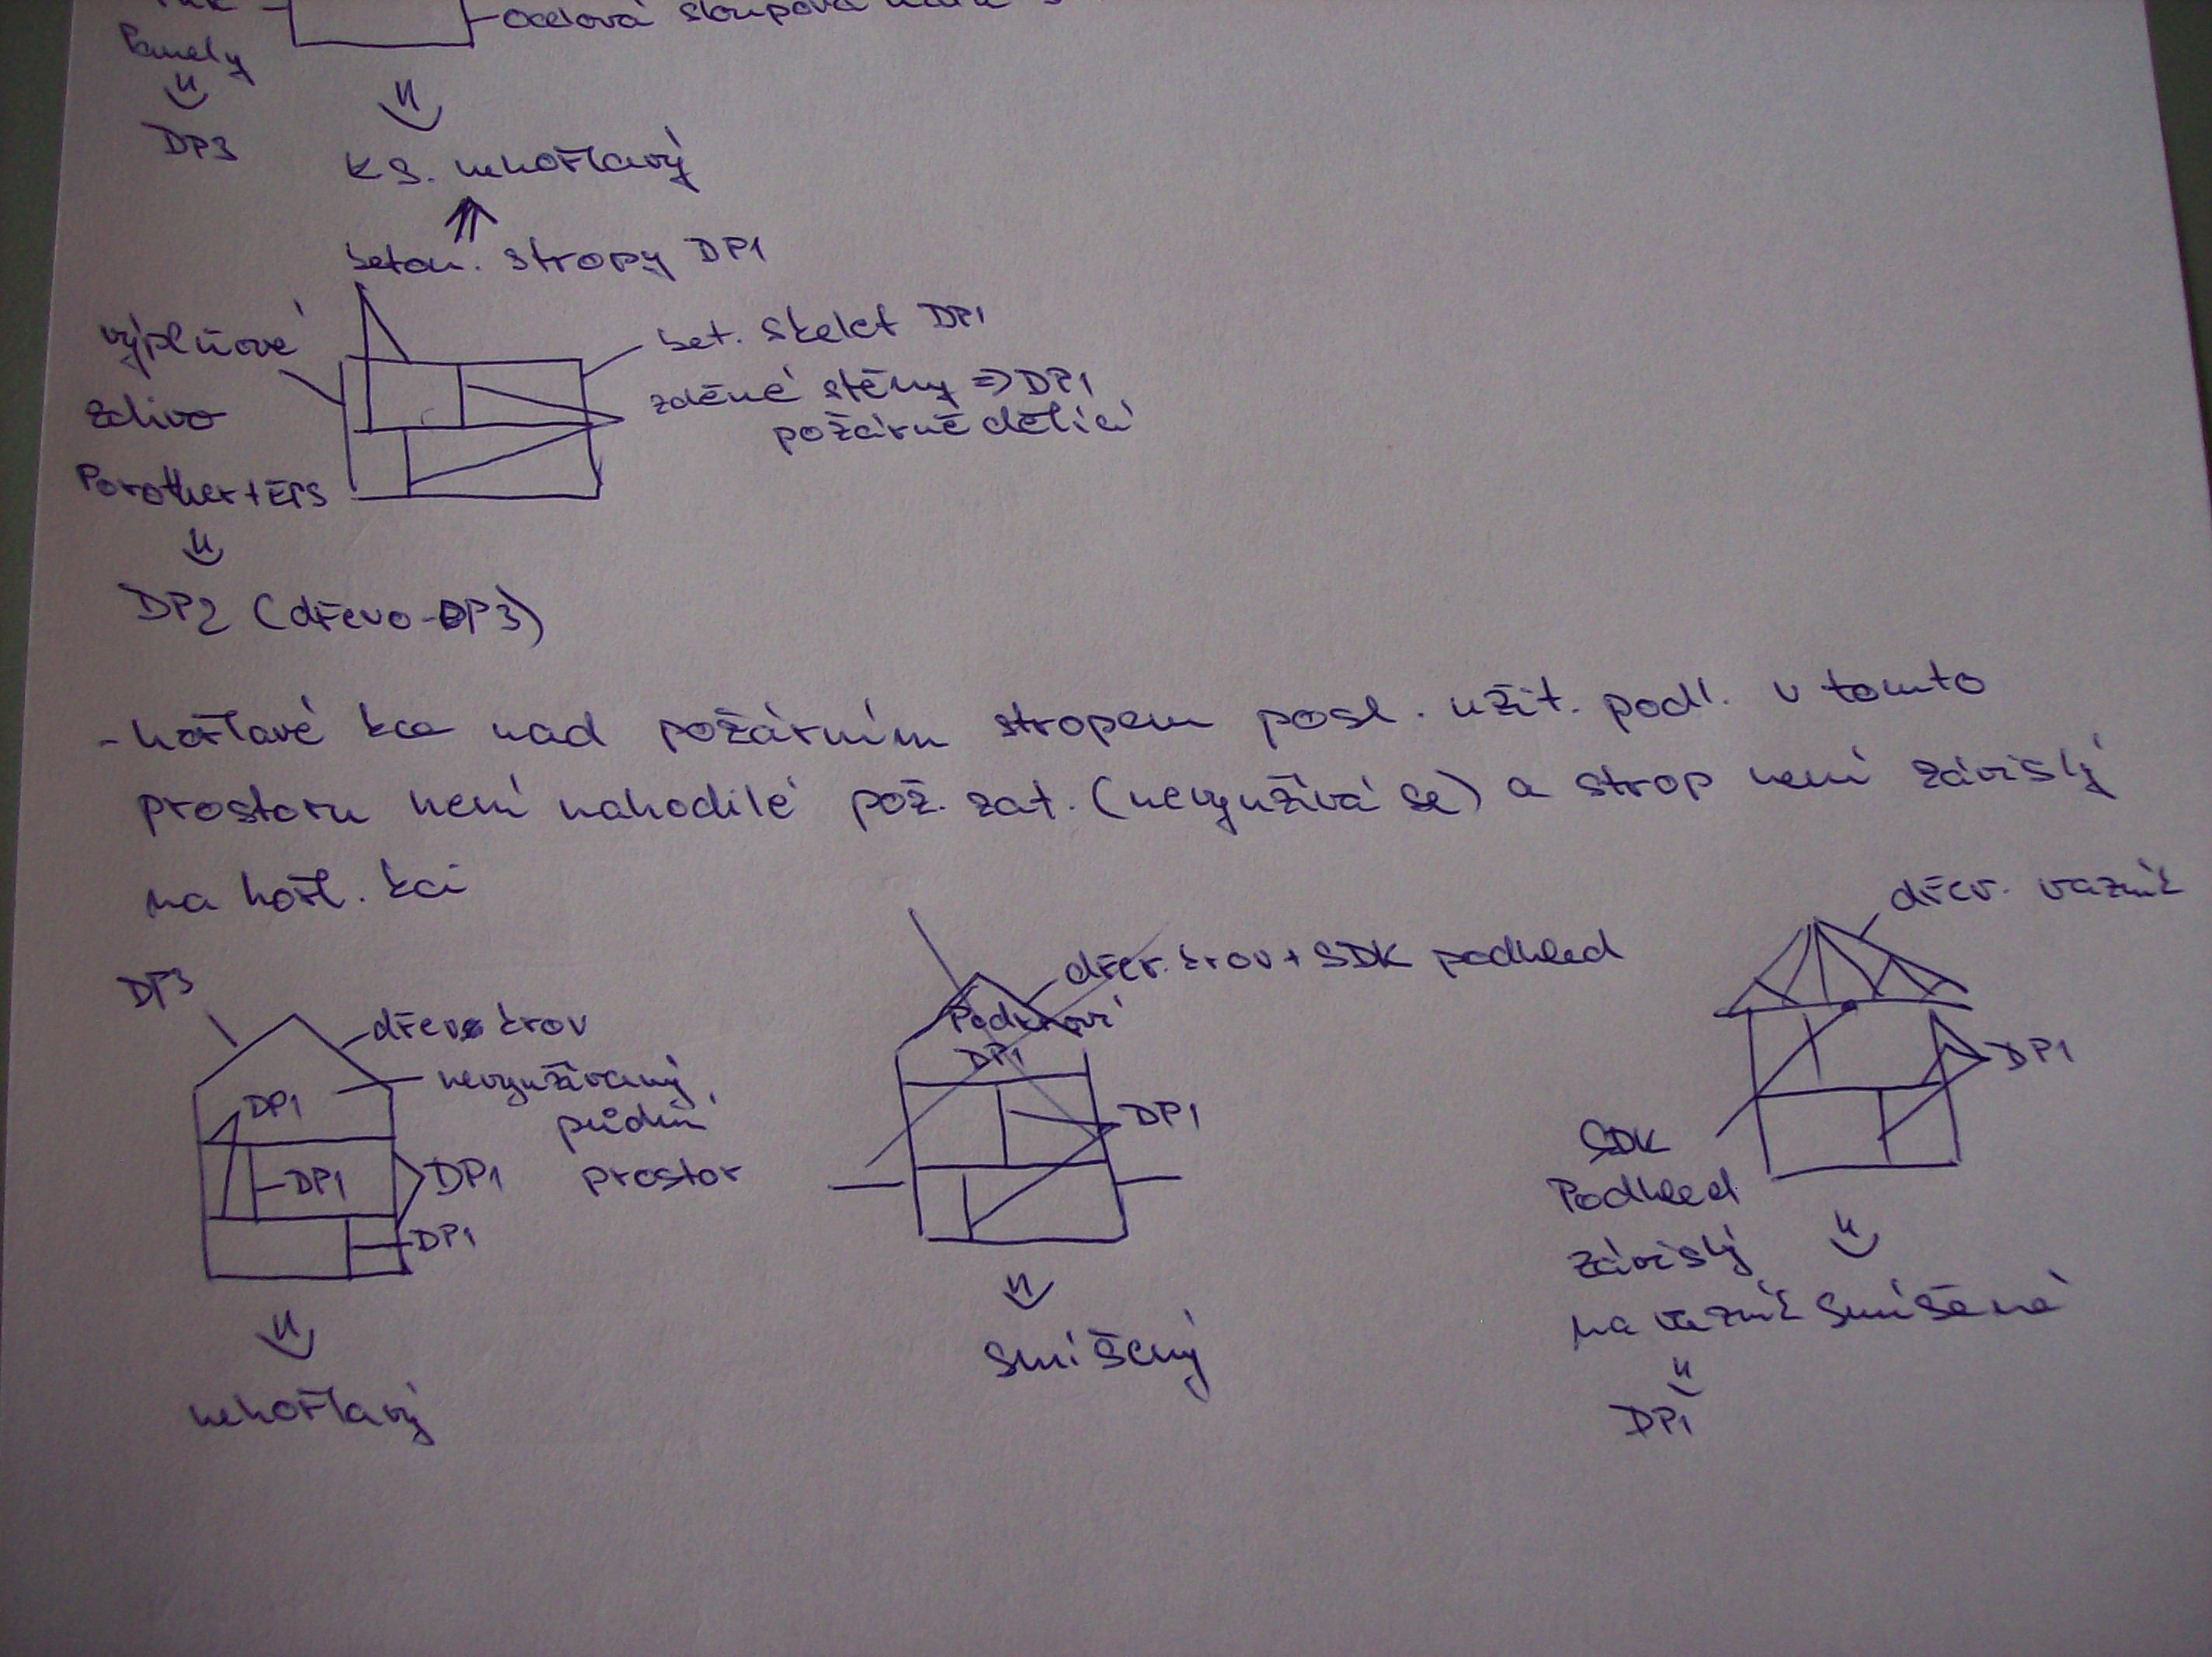 ocelová sloupová
Panely
DP3
KS. nehořlavý
beton. stropy DP1
výplňové
zdivo
Porother+EPS
DP2 (dřevo-DP3)
bet. skelet DP1
zděné stěny => DP1
požárně dělící
- hořlavé kce nad požárním stropem posl. užit. podl. v tomto
prostoru není nahodilé pož. zat. (nevyužívá se) a strop není závislý
na hořl. kci
DP3
dřev. krov
nevyužívaný
půdní
prostor
DP1
DP1
DP1
DP1
nehořlavý
dřev. krov + SDK podhled
Podkroví
DP1
DP1
smíšený
dřev. vazník
DP1
SDK
Podhled
závislý
na vazník
DP1
smíšené